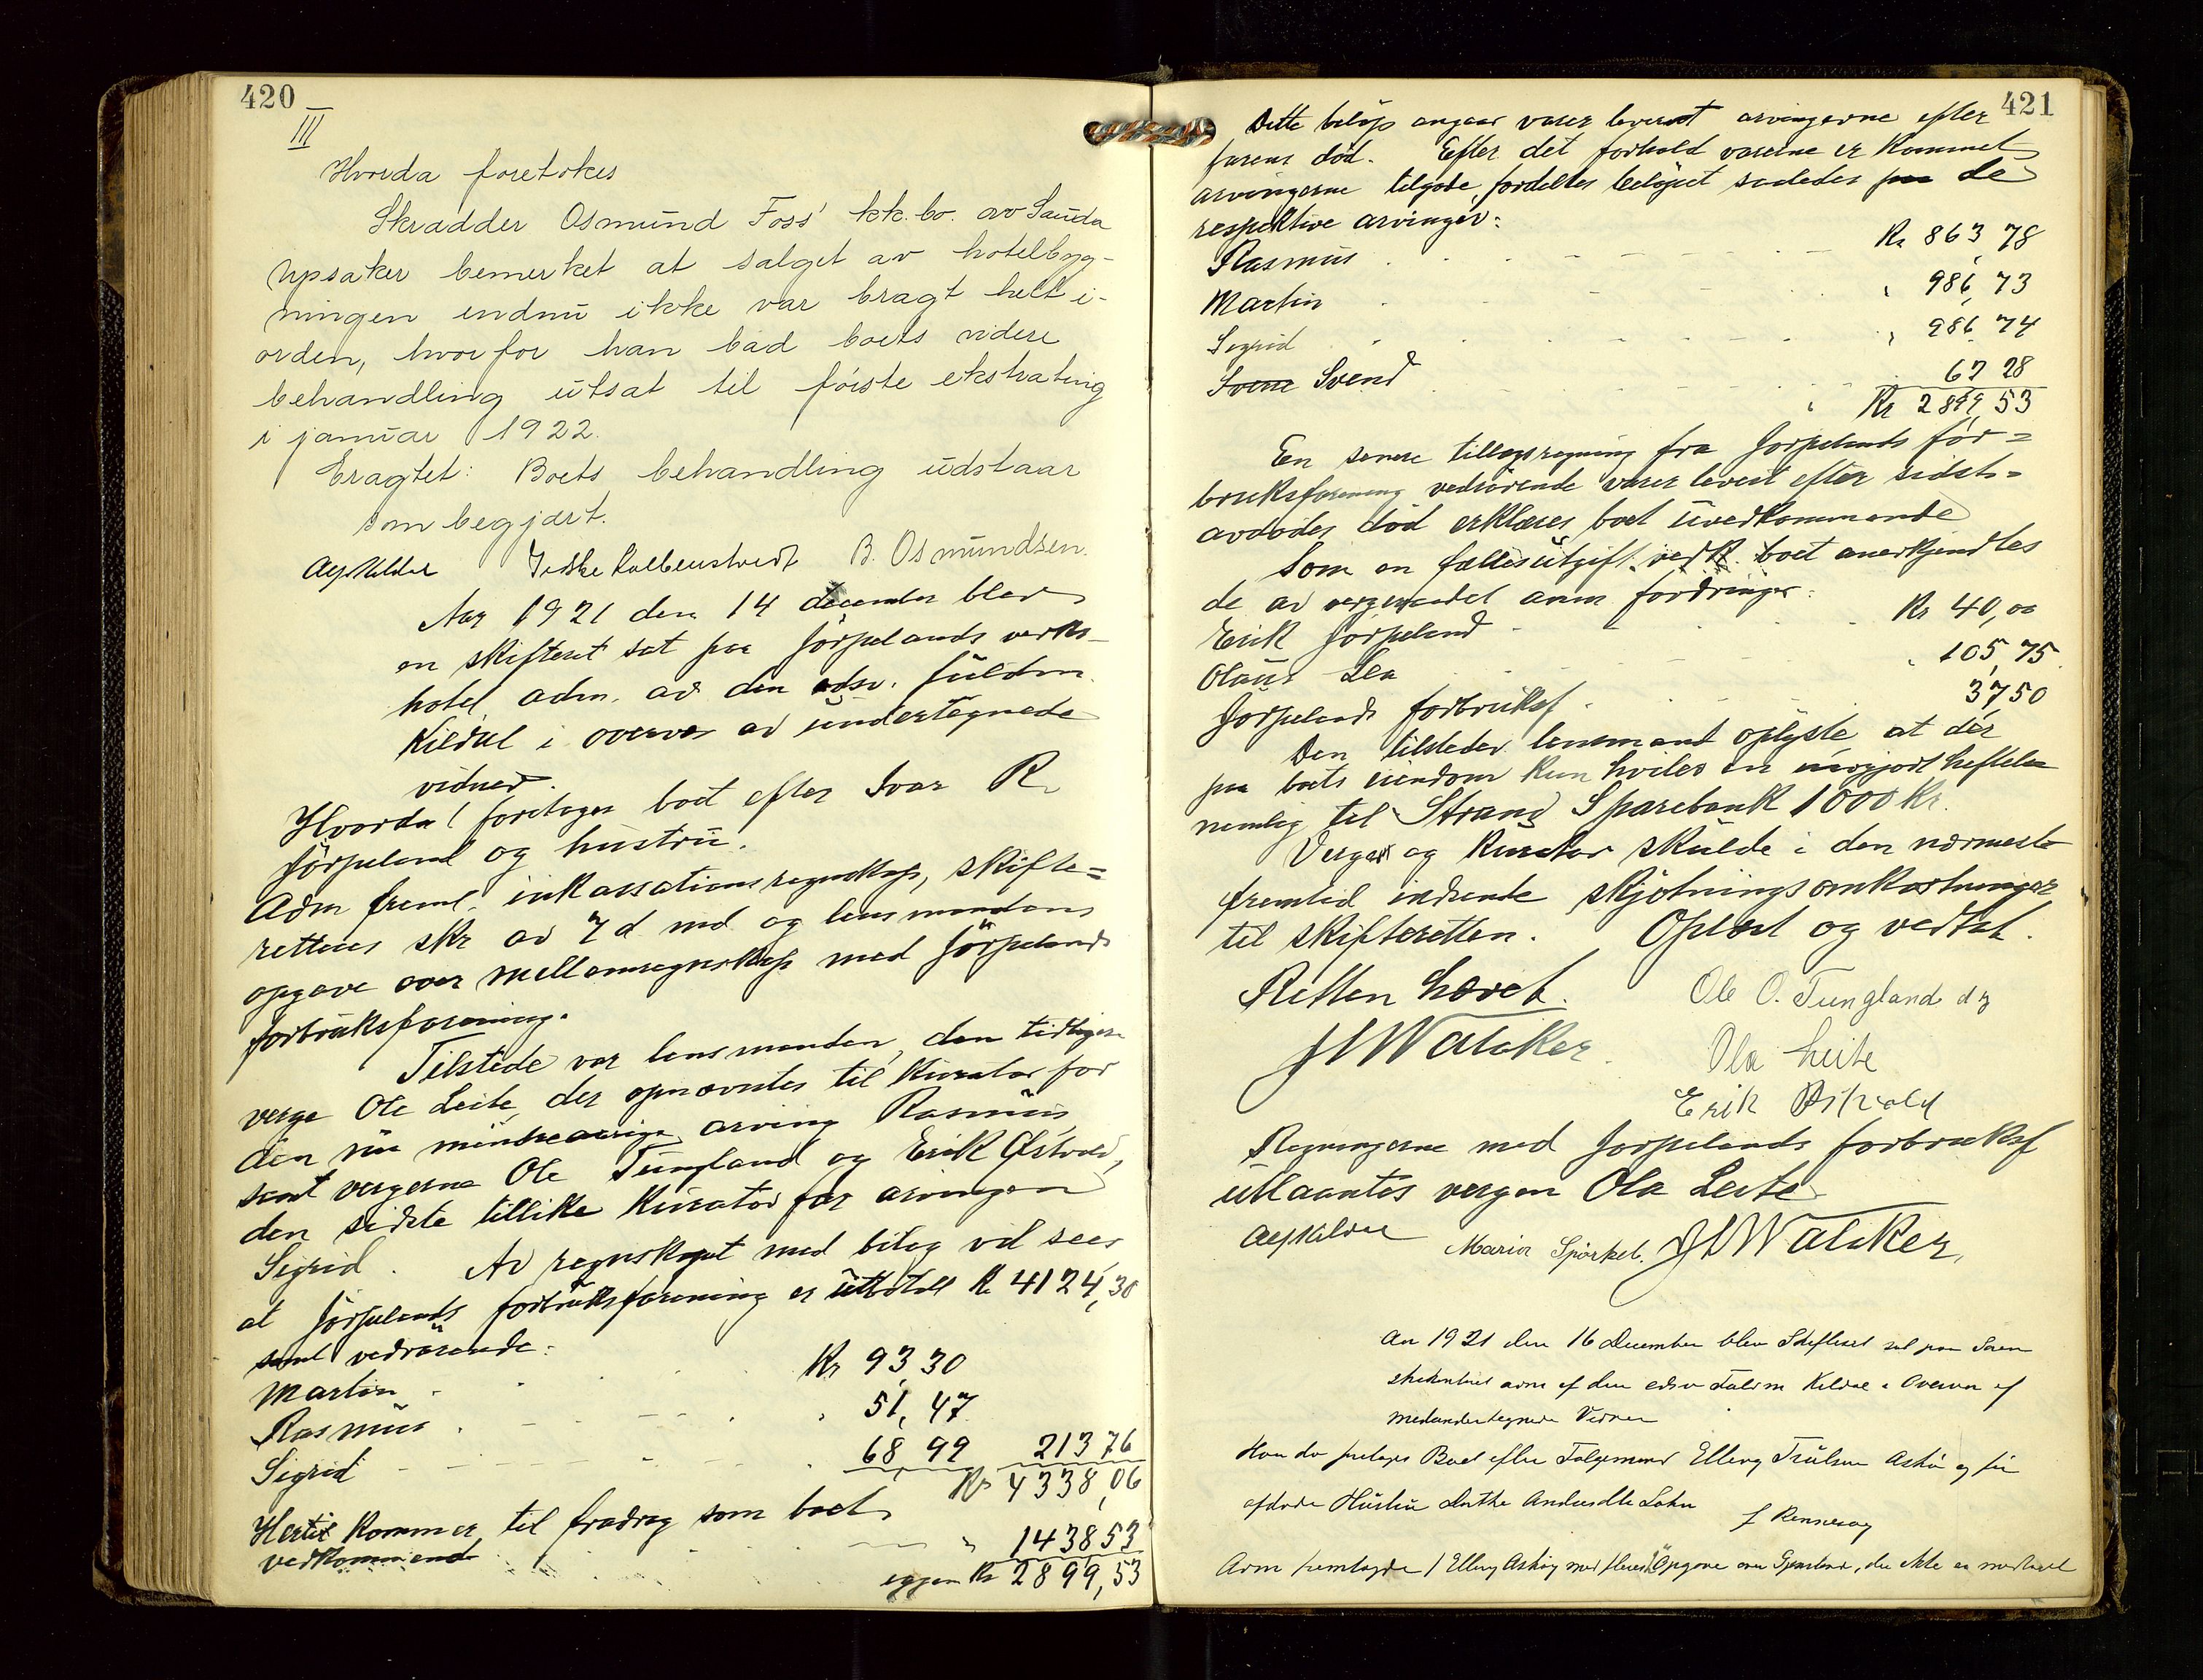 420
III
Hvorda foretokes
Skrædder Osmund Foss' kk. bo. av Sauda
Upsaker bemerket at salget av hotelbyg-
ningen endnu ikke var bragt helt i-
orden, hvorfor han bad boets videre
behandling utsat til første ekstrating
i januar 1922.
Eragtet: Boets behandling udstaar
som begjært.
Alf Kildal B. Osmundsen.
Aar 1921 den 14 december blev
en skifteret sat paa Jörpelands verks-
hotel adm. av den edsv. fuldm.
Kildal i overvær av undertegnede
vidner.
Hvorda! foretoges boet efter Ivar R.
Jörpeland og hustru.
Adm freml. inkassationsregnskap, skifte=
rettens skr av 7 d md og lensmandens
opgave over mellemregnskap med Jörpelands
forbruksforening.
Tilstede var lensmanden, den tidligere
verge Ole Leite, der opnævntes til kurator for
den nu mindreaarige arving Rasmus,
samt vergerne Ole Tungland og Erik Østvold,
den sidste tillike kurator for arvingen
Sigrid. Av regnskapet med bilag vil sees
at Jörpelands forbruksforening er utbetalt Kr 4124,30
samt vedrørende:
Martin Kr 93,30
Rasmus " 51,47
Sigrid 68,99 213 76
Kr 4338,06
Hertil kommer til fradrag som boet
vedkommende " 1438 53
igjen Kr 2899,53
421
Dette beløp angaar varer leveret arvingerne efter
farens død. Efter det forhold varerne er kommet
arvingerne tilgode fordeltes beløpet saaledes paa de
respektive arvinger:
Rasmus Kr 863,78
Martin " 986,73
Sigrid " 986,74
Svenn Svend 62 28
Kr 2899 53
En senere tillægsregning fra Jørpelands for=
bruksforening vedrørende varer levert efter sidst=
avdødes død erklæres boet uvedkommende
Som en fællesutgift vedk. boet anerkjendtes
de av vergeraadet anm fordringer:
Erik Jörpeland Kr 40,00
Olaus Lea " 105,75
Jørpelands forbruksf. 37,50
Den tilstedev. lensmand oplyste at der
paa boets eiendom kun hviler en uopgjort heftelse
nemlig til Strand Sparebank 1000 Kr.
Verger og kurator skulde i den nærmeste
fremtid indsende skjøtningsomkostninger
til skifteretten. Oplæst og vedtat.
Retten hævet. Ole O. Tungland
JHWalcker. Ola Leite
Erik Østvold
Regningerne med Jørpelands forbruksf
utlaantes vergen Ola Leite
Alf Kildal Maria Spörkel. JHWalcker,
Aar 1921 den 16 December blev Skifteret sat paa Soren-
skriverkontoret adm af den edsv Fuldm Kildal i Overvær af
medundertegnede Vidner
Hvorda foretages Boet efter Elling Trulsen Askø og før
afdøde Hustru
f Rennesøy
Adm fremlagde / Elling Askøy med fleres Opgave over , der ikke er medtaget